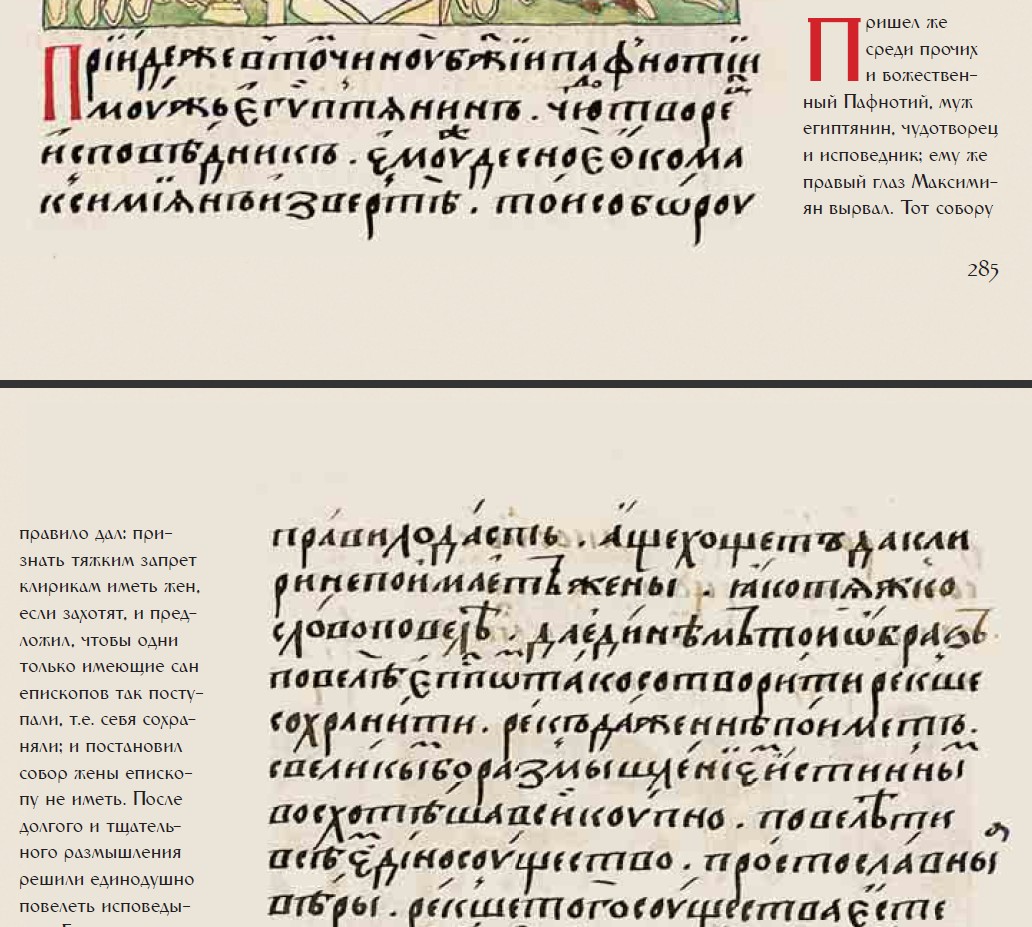 Прїидеже въточинноубж҃їипафнотїи
моужьегѵптянинъ. чюдотворе
исповѣдникъ. емоудесноеѲкома
ксимїянъизвертѣ. тоисобѡроу
Пришел же
среди прочих
и божествен-
ный Пафнотий, муж
египтянин, чудотворец
и исповедник; ему же
правый глаз Максими-
ян вырвал. Тот собору
285
правило дал: при-
знать тяжким запрет
клирикам иметь жен,
если захотят, и пред-
ложил, чтобы одни
только имеющие сан
епископов так посту-
пали, т.е. себя сохра-
няли; и постановил
собор жены еписко-
пу не иметь. После
долгого и тщатель-
ного размышления
решили единодушно
повелеть исповеды-
правилодасть. ащехощетъдакли
ринепоимлетьжены. якотяжко
словоповелѣ. даединѣмътоиѡбразъ
повелѣеп҃пѡтакосотворитирекше
сохранити. рекъдаженнѣпоиметь.
свеликыборазмышленїеиистинны
восхотѣшавсикоупно. повелѣти
всѣединосоущество. простославны
вѣры. рекшетогосоуществаесте